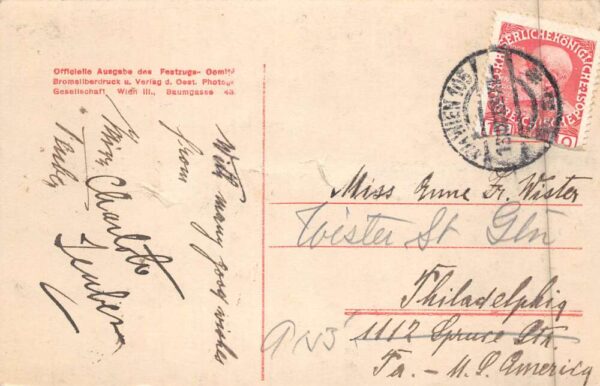 Officielle Ausgabe des Festzugs-Comité
Bromsilberdruck u. Verlag d. Oest. Photogr
Gesellschaft, Wien III., Baumgasse 43.
With many good wishes
from
Miss Charlotte
WIEN
KAISERLICHE KÖNIGLICHE
10
Miss Anne Fr. Wister
Wister St Gtn
Philadelphia
1112 Spruce Str.
Pa. - U.S. America